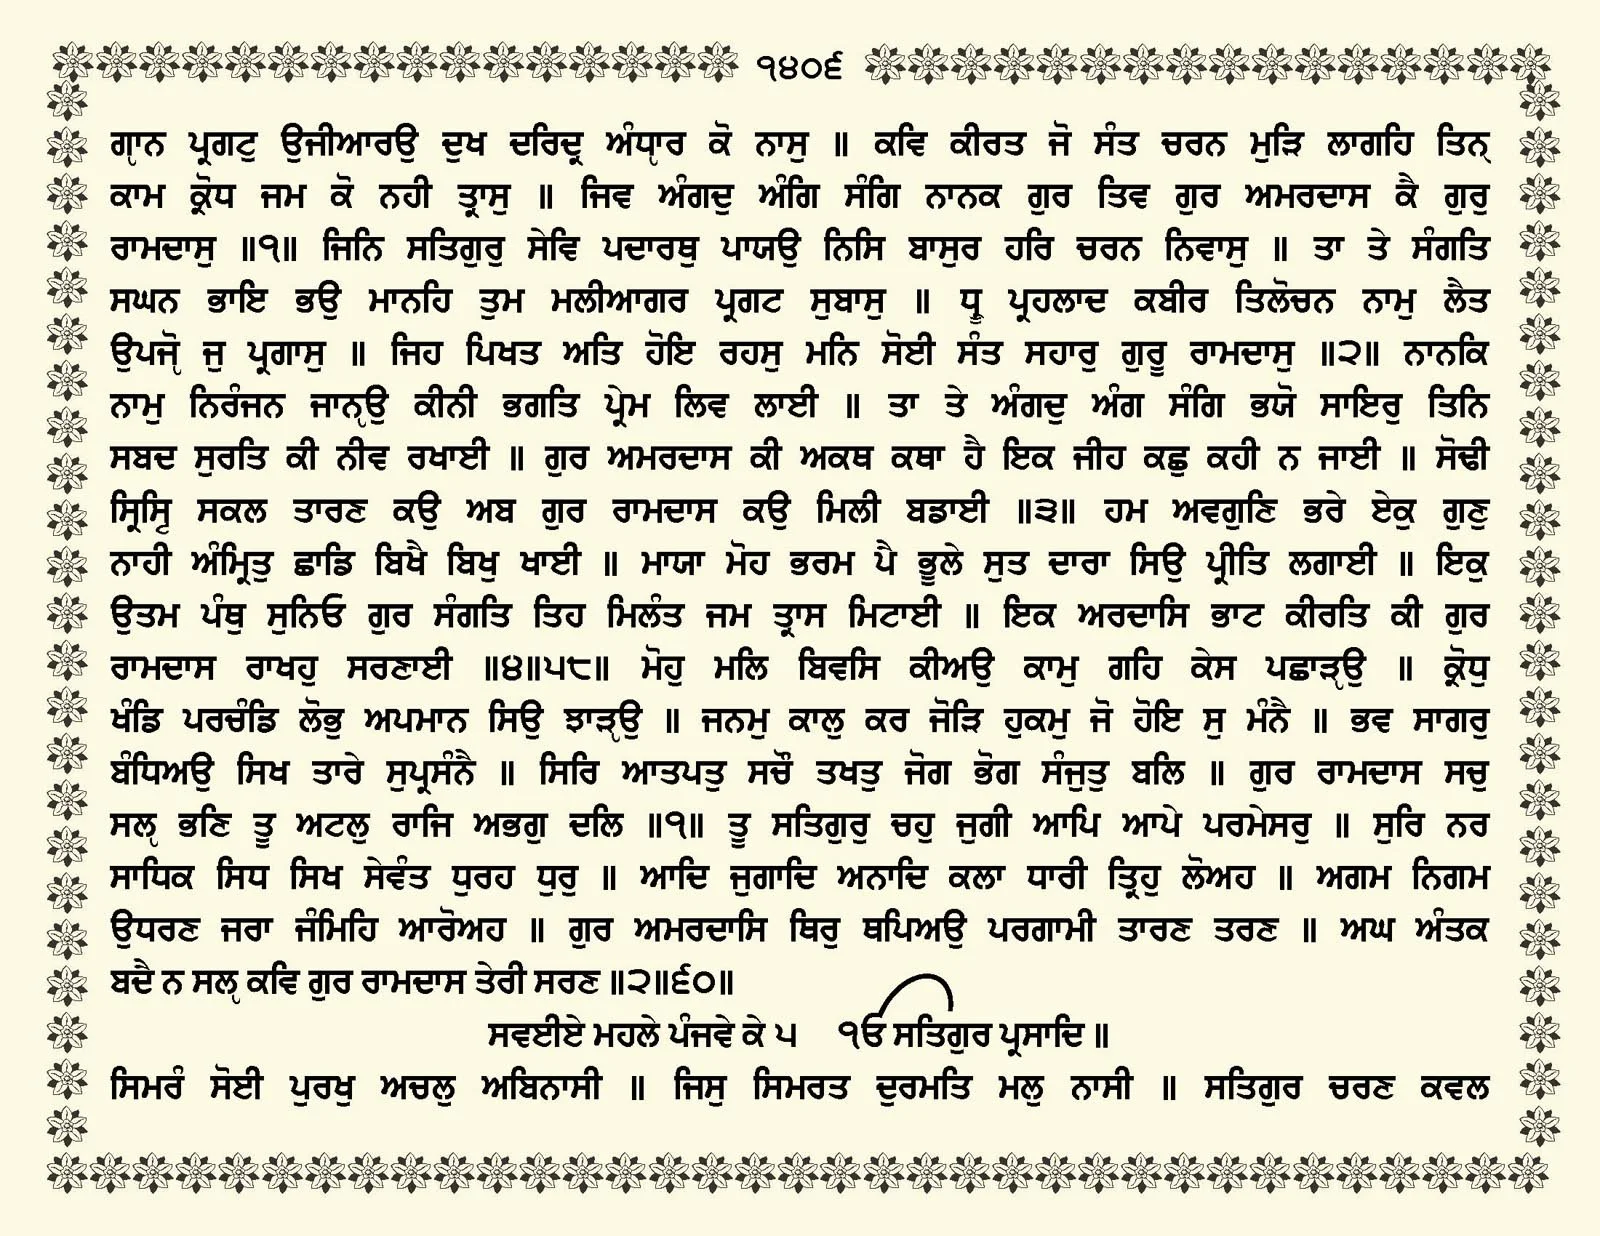 ੧੪੦੬
ਗੵਾਨ ਪ੍ਰਗਟੁ ਉਜੀਆਰਉ ਦੁਖ ਦਰਿਦ੍ਰ ਅੰਧੵਾਰ ਕੋ ਨਾਸੁ ॥ ਕਵਿ ਕੀਰਤ ਜੋ ਸੰਤ ਚਰਨ ਮੁੜਿ ਲਾਗਹਿ ਤਿਨੑ
ਕਾਮ ਕ੍ਰੋਧ ਜਮ ਕੋ ਨਹੀ ਤ੍ਰਾਸੁ ॥ ਜਿਵ ਅੰਗਦੁ ਅੰਗਿ ਸੰਗਿ ਨਾਨਕ ਗੁਰ ਤਿਵ ਗੁਰ ਅਮਰਦਾਸ ਕੈ ਗੁਰੁ
ਰਾਮਦਾਸੁ ॥੧॥ ਜਿਨਿ ਸਤਿਗੁਰੁ ਸੇਵਿ ਪਦਾਰਥੁ ਪਾਯਉ ਨਿਸਿ ਬਾਸੁਰ ਹਰਿ ਚਰਨ ਨਿਵਾਸੁ ॥ ਤਾ ਤੇ ਸੰਗਤਿ
ਸਘਨ ਭਾਇ ਭਉ ਮਾਨਹਿ ਤੁਮ ਮਲੀਆਗਰ ਪ੍ਰਗਟ ਸੁਬਾਸੁ ॥ ਧ੍ਰੂ ਪ੍ਰਹਲਾਦ ਕਬੀਰ ਤਿਲੋਚਨ ਨਾਮੁ ਲੈਤ
ਉਪਜੵੋ ਜੁ ਪ੍ਰਗਾਸੁ ॥ ਜਿਹ ਪਿਖਤ ਅਤਿ ਹੋਇ ਰਹਸੁ ਮਨਿ ਸੋਈ ਸੰਤ ਸਹਾਰੁ ਗੁਰੂ ਰਾਮਦਾਸੁ ॥੨॥ ਨਾਨਕਿ
ਨਾਮੁ ਨਿਰੰਜਨ ਜਾਨੵਉ ਕੀਨੀ ਭਗਤਿ ਪ੍ਰੇਮ ਲਿਵ ਲਾਈ ॥ ਤਾ ਤੇ ਅੰਗਦੁ ਅੰਗ ਸੰਗਿ ਭਯੋ ਸਾਇਰੁ ਤਿਨਿ
ਸਬਦ ਸੁਰਤਿ ਕੀ ਨੀਵ ਰਖਾਈ ॥ ਗੁਰ ਅਮਰਦਾਸ ਕੀ ਅਕਥ ਕਥਾ ਹੈ ਇਕ ਜੀਹ ਕਛੁ ਕਹੀ ਨ ਜਾਈ ॥ ਸੋਢੀ
ਸ੍ਰਿਸ੍ਟਿ ਸਕਲ ਤਾਰਣ ਕਉ ਅਬ ਗੁਰ ਰਾਮਦਾਸ ਕਉ ਮਿਲੀ ਬਡਾਈ ॥੩॥ ਹਮ ਅਵਗੁਣਿ ਭਰੇ ਏਕੁ ਗੁਣੁ
ਨਾਹੀ ਅੰਮ੍ਰਿਤੁ ਛਾਡਿ ਬਿਖੈ ਬਿਖੁ ਖਾਈ ॥ ਮਾਯਾ ਮੋਹ ਭਰਮ ਪੈ ਭੂਲੇ ਸੁਤ ਦਾਰਾ ਸਿਉ ਪ੍ਰੀਤਿ ਲਗਾਈ ॥ ਇਕੁ
ਉਤਮ ਪੰਥੁ ਸੁਨਿਓ ਗੁਰ ਸੰਗਤਿ ਤਿਹ ਮਿਲੰਤ ਜਮ ਤ੍ਰਾਸ ਮਿਟਾਈ ॥ ਇਕ ਅਰਦਾਸਿ ਭਾਟ ਕੀਰਤਿ ਕੀ ਗੁਰ
ਰਾਮਦਾਸ ਰਾਖਹੁ ਸਰਣਾਈ ॥੪॥੫੮॥ ਮੋਹੁ ਮਲਿ ਬਿਵਸਿ ਕੀਅਉ ਕਾਮੁ ਗਹਿ ਕੇਸ ਪਛਾੜੵਉ ॥ ਕ੍ਰੋਧੁ
ਖੰਡਿ ਪਰਚੰਡਿ ਲੋਭੁ ਅਪਮਾਨ ਸਿਉ ਝਾੜੵਉ ॥ ਜਨਮੁ ਕਾਲੁ ਕਰ ਜੋੜਿ ਹੁਕਮੁ ਜੋ ਹੋਇ ਸੁ ਮੰਨੈ ॥ ਭਵ ਸਾਗਰੁ
ਬੰਧਿਅਉ ਸਿਖ ਤਾਰੇ ਸੁਪ੍ਰਸੰਨੈ ॥ ਸਿਰਿ ਆਤਪਤੁ ਸਚੌ ਤਖਤੁ ਜੋਗ ਭੋਗ ਸੰਜੁਤੁ ਬਲਿ ॥ ਗੁਰ ਰਾਮਦਾਸ ਸਚੁ
ਸਲੵ ਭਣਿ ਤੂ ਅਟਲੁ ਰਾਜਿ ਅਭਗੁ ਦਲਿ ॥੧॥ ਤੂ ਸਤਿਗੁਰੁ ਚਹੁ ਜੁਗੀ ਆਪਿ ਆਪੇ ਪਰਮੇਸਰੁ ॥ ਸੁਰਿ ਨਰ
ਸਾਧਿਕ ਸਿਧ ਸਿਖ ਸੇਵੰਤ ਧੁਰਹ ਧੁਰੁ ॥ ਆਦਿ ਜੁਗਾਦਿ ਅਨਾਦਿ ਕਲਾ ਧਾਰੀ ਤ੍ਰਿਹੁ ਲੋਅਹ ॥ ਅਗਮ ਨਿਗਮ
ਉਧਰਣ ਜਰਾ ਜੰਮਿਹਿ ਆਰੋਅਹ ॥ ਗੁਰ ਅਮਰਦਾਸਿ ਥਿਰੁ ਥਪਿਅਉ ਪਰਗਾਮੀ ਤਾਰਣ ਤਰਣ ॥ ਅਘ ਅੰਤਕ
ਬਦੈ ਨ ਸਲੵ ਕਵਿ ਗੁਰ ਰਾਮਦਾਸ ਤੇਰੀ ਸਰਣ ॥੨॥੬੦॥
ਸਵਈਏ ਮਹਲੇ ਪੰਜਵੇ ਕੇ ੫ ੴ ਸਤਿਗੁਰ ਪ੍ਰਸਾਦਿ ॥
ਸਿਮਰੰ ਸੋਈ ਪੁਰਖੁ ਅਚਲੁ ਅਬਿਨਾਸੀ ॥ ਜਿਸੁ ਸਿਮਰਤ ਦੁਰਮਤਿ ਮਲੁ ਨਾਸੀ ॥ ਸਤਿਗੁਰ ਚਰਣ ਕਵਲ